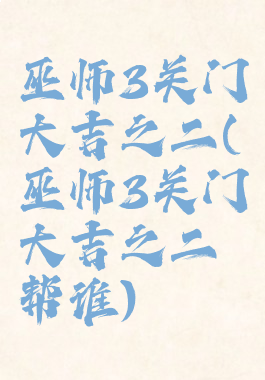 巫师3关门
大吉之二(
巫师3关门
大吉之二
帮谁)